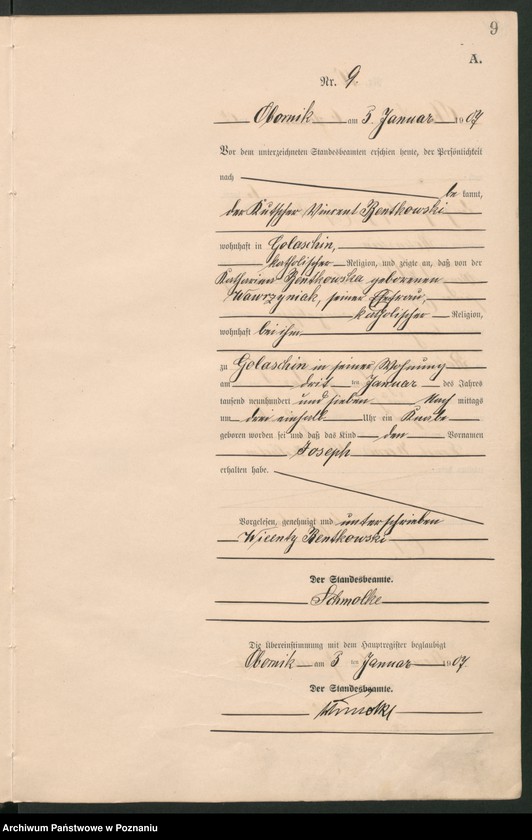 9
A.
Nr. 9
Obornik am 3. Januar 1907
Vor dem unterzeichneten Standesbeamten erschien heute, der Persönlichkeit
nach
be kannt,
der Kutscher Vincent Bentkowski
wohnhaft in Golaschin,
katholischer Religion, und zeigte an, daß von der
Katharina Bentkowska geborenen
Wawrzyniak, seiner Ehefrau,
katholischer Religion,
wohnhaft bei ihm
zu Golaschin in seiner Wohnung
am ten Januar des Jahres
tausend neunhundert und sieben Nach mittags
um drei einhalb Uhr ein Knabe
geboren worden sei und daß das Kind den Vornamen
Joseph
erhalten habe.
Vorgelesen, genehmigt und unterschrieben
Wicenty Bentkowski
Der Standesbeamte.
Schmolke
Die Übereinstimmung mit dem Hauptregister beglaubigt
Obornik am 3 ten Januar 1907
Der Standesbeamte.
Schmolke
Archiwum Państwowe w Poznaniu